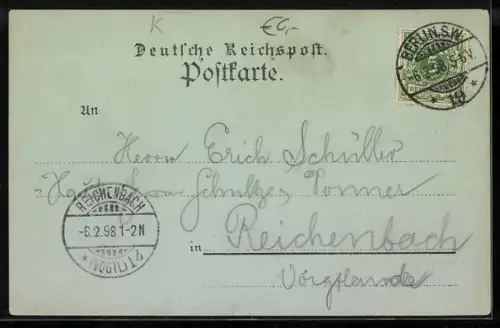 K €6,-
Deutsche Reichspost.
Postkarte.
BERLIN.S.W.
-6.2.98.5-6V
* 19 *
An
Herrn Erich Schüller
Schultze
REICHENBACH
-6.2.98 1-2N
*(VOGTL)1 d
in Reichenbach
Voigtlande